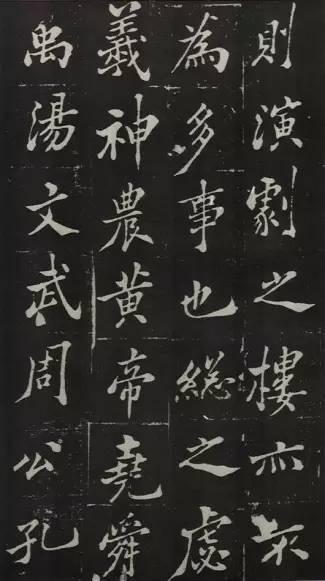 則演劇之樓亦不
為多事也總之虙
羲神農黃帝堯舜
禹湯文武周公孔